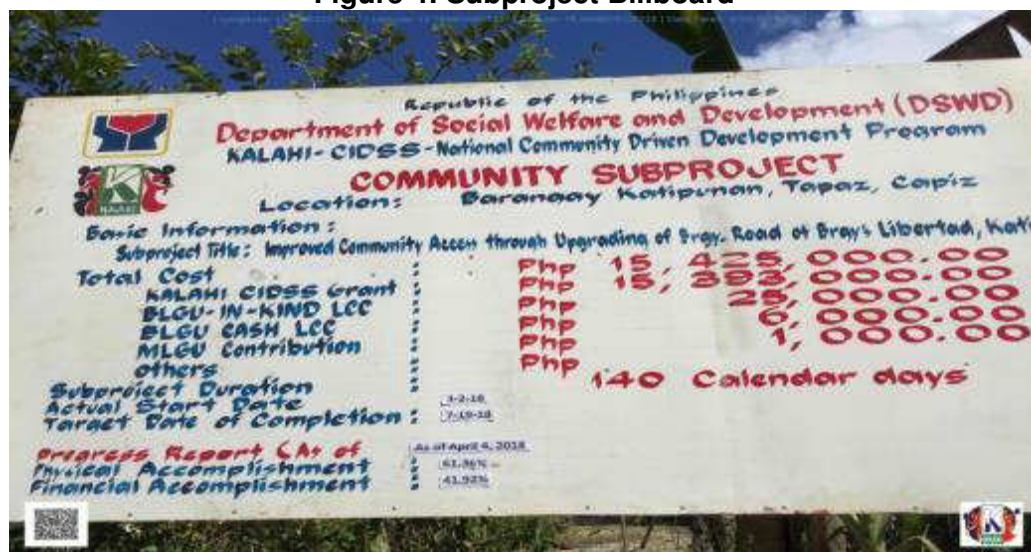 Figure 4. Subproject Billboard
Republic of the Philippines
Department of Social Welfare and Development (DSWD)
KALAHI-CIDSS-National Community Driven Development Program
COMMUNITY SUBPROJECT
Location: Barangay Katipunan, Tapaz, Capiz
Basic Information:
Subproject Title: Improved Community Access through Upgrading of Brgy. Road at Brgy's Libertad, Kati
Total Cost : Php 15,425,000.00
KALAHI CIDSS Grant : Php 15,393,000.00
BLGU-IN-KIND LCC : Php 25,000.00
BLGU CASH LCC : Php 6,000.00
MLGU Contribution : Php 1,000.00
others : Php
Subproject Duration : 140 Calendar days
Actual Start Date : 3-2-18
Target Date of Completion : 7-19-18
Progress Report (As of As of April 4, 2018
Physical Accomplishment : 61.36%
Financial Accomplishment : 41.92%
KALAHI